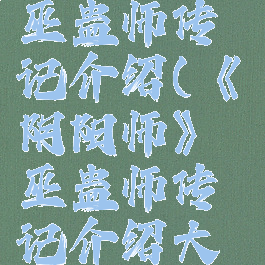 巫蛊师传
记介绍(《
阴阳师》
巫蛊师传
记介绍大